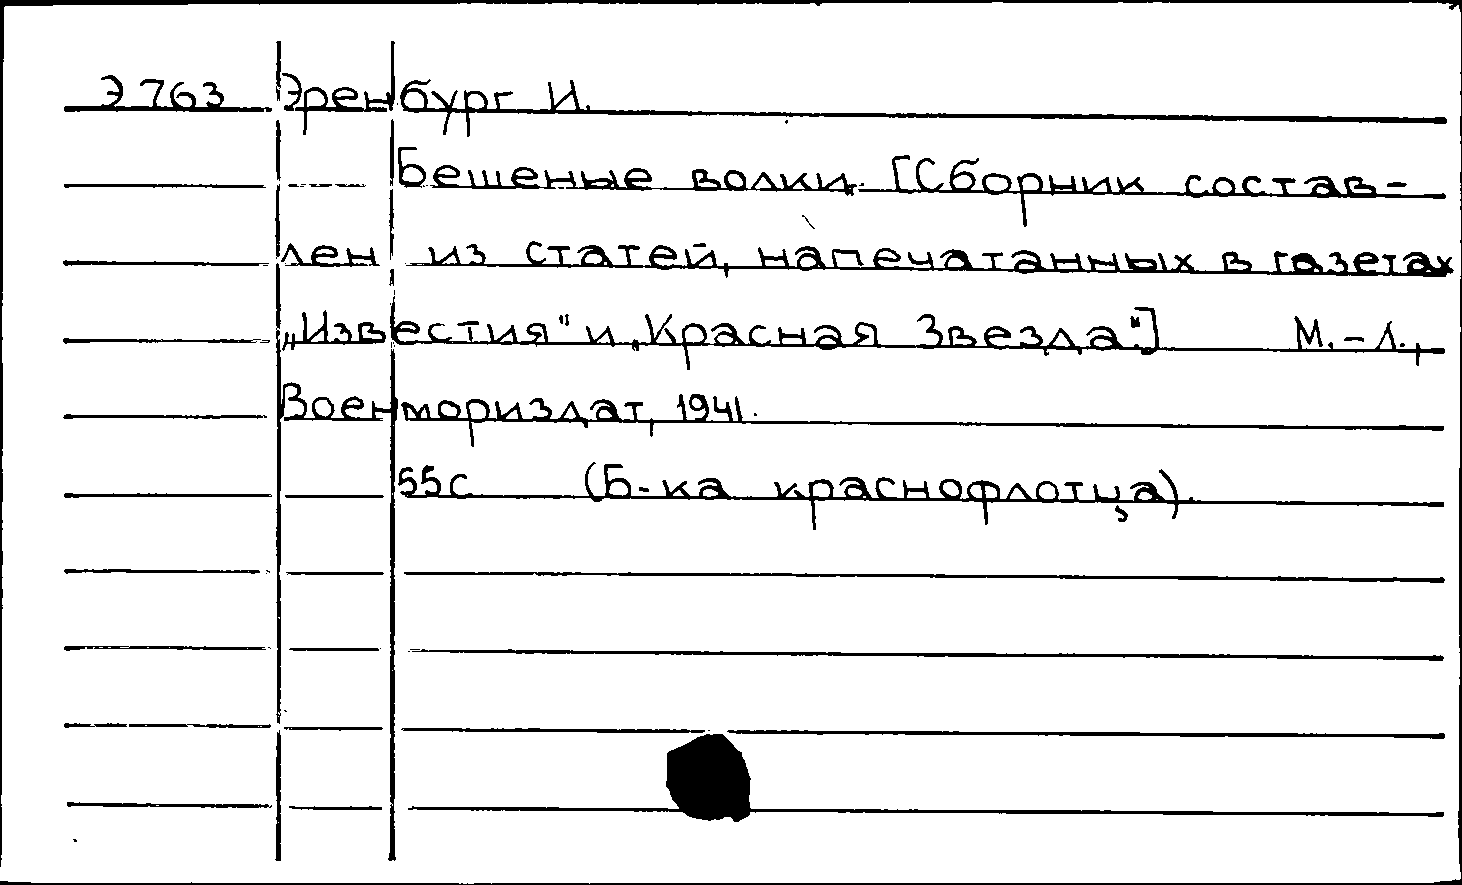 Э 763 Эренбург И.
Бешеные волки. [Сборник состав-
лен из статей, напечатанных в газетах
„Известия" и „Красная Звезда".] М.-Л.,
Военмориздат, 1941.
55с (Б-ка краснофлотца).